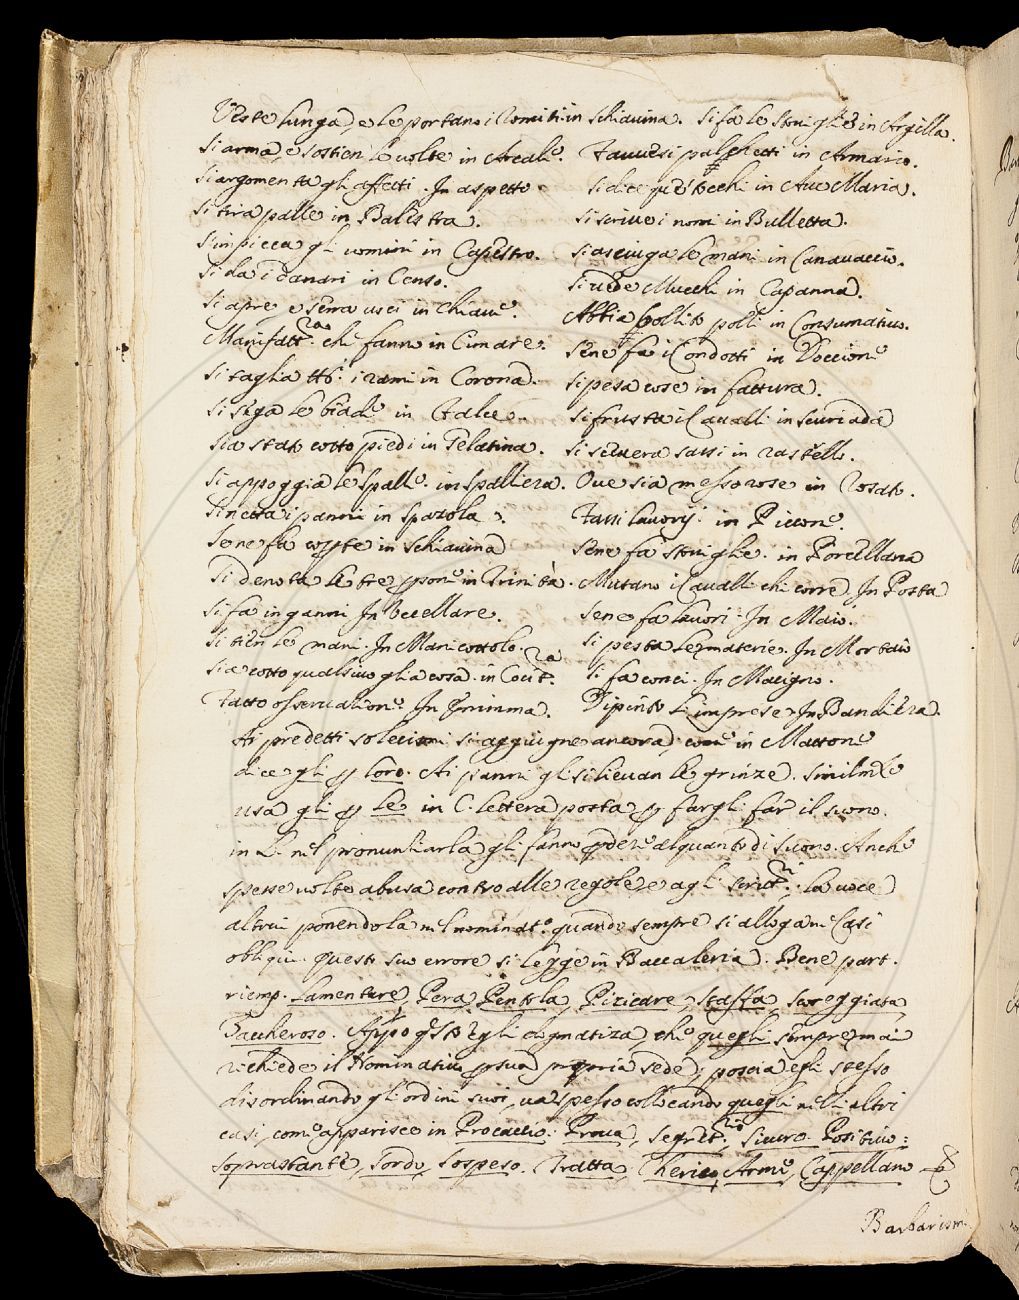 Veste lunga, e le portano i Romiti in Schiavina. Si fa le stoviglie in Argilla.
Si arma, e sostien le volte in Arcale. Favvesi palchetti in Armario.
Si argomenta gli affetti. In aspetto. Si dice questochi in Ave Maria.
Si tira palle in Balestra. Si scrive i nomi in Bulletta.
S'impicca gli uomini in Capestro. Si asciuga le mani in Canavaccio.
Si da i danari in Censo. Si vede Mucchi in Capanna.
Si apre e serra usci in Chiave. Abbia bollito polli in Consumativo.
Manifatt.ra che fanno in Cimare. Sene fa i Condotti in Doccione
Si taglia i rami in Corona. Si pesa cose in fattura.
Si sega le biade in Falce. Si frusta i Cavalli in scuriada
Sia stato cotto piedi in Gelatina. Si scevera sassi in rastello.
Si appoggia le spalle. in spalliera. Ove sia messo rose in Rosato.
Si netta i panni in Spazola. Fassi lavorij in Piccone.
Sene fa coperte in Schiavina Sene fa stoviglie. in Porcellana
Si denota le tre persone in Trinità. Mutano i Cavalli chi corre. In Posta
Si fa inganni In Uccellare. Sene fa lavori. In Maio.
Si tien le mani. In Manicottolo. Si pesta le materie. In Mortaio
Sia cotto qualsivoglia cosa. in Cocit.ra Si fa conci. In Macigno.
Fatto osservatione. In Dipinto l'imprese. In Bandiera.
Ai predetti solecismi si aggiugne ancora, come in Mattone
dice gli p loro. Ai panni gli si lievan le grinze. similmte
usa gli p le in C. lettera posta p fargli far il suono.
in L. nel pronuntiarla gli fanno perdere alquanto di suono. Anche
spesse volte abusa contro alle regole, e agli Scritt.ri la voce
altrui ponendola nel nominat.o quando sempre si alloga ne Casi
obliqui. questo suo errore si legge in Baccaleria. Bene part.
riemp. Lamentare, Pera, Pentola, Pizicare, staffa, Scoreggiata,
Zaccheroso. Appo questo egli dogmatiza, che quegli sempre mai
richiede il Nominativo p sua propria sede; poscia egli stesso
disordinando gli ordini suoi, va spesso collocando quegli nelli altri
casi, come apparisce in Procaccio: Prova, Segret.rio Sicuro. Positivo:
soprastante, sordo, sospeso. Tratta, Cherico, Arme, Cappellano
Barbarismi